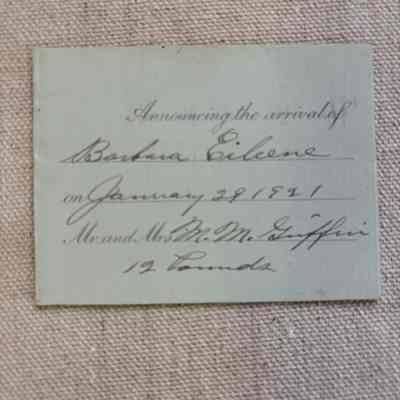 Announcing the arrival of
Barbara Eileene
on January 29 1921
Mr. and Mrs. M. M. Griffin
12 Pounds